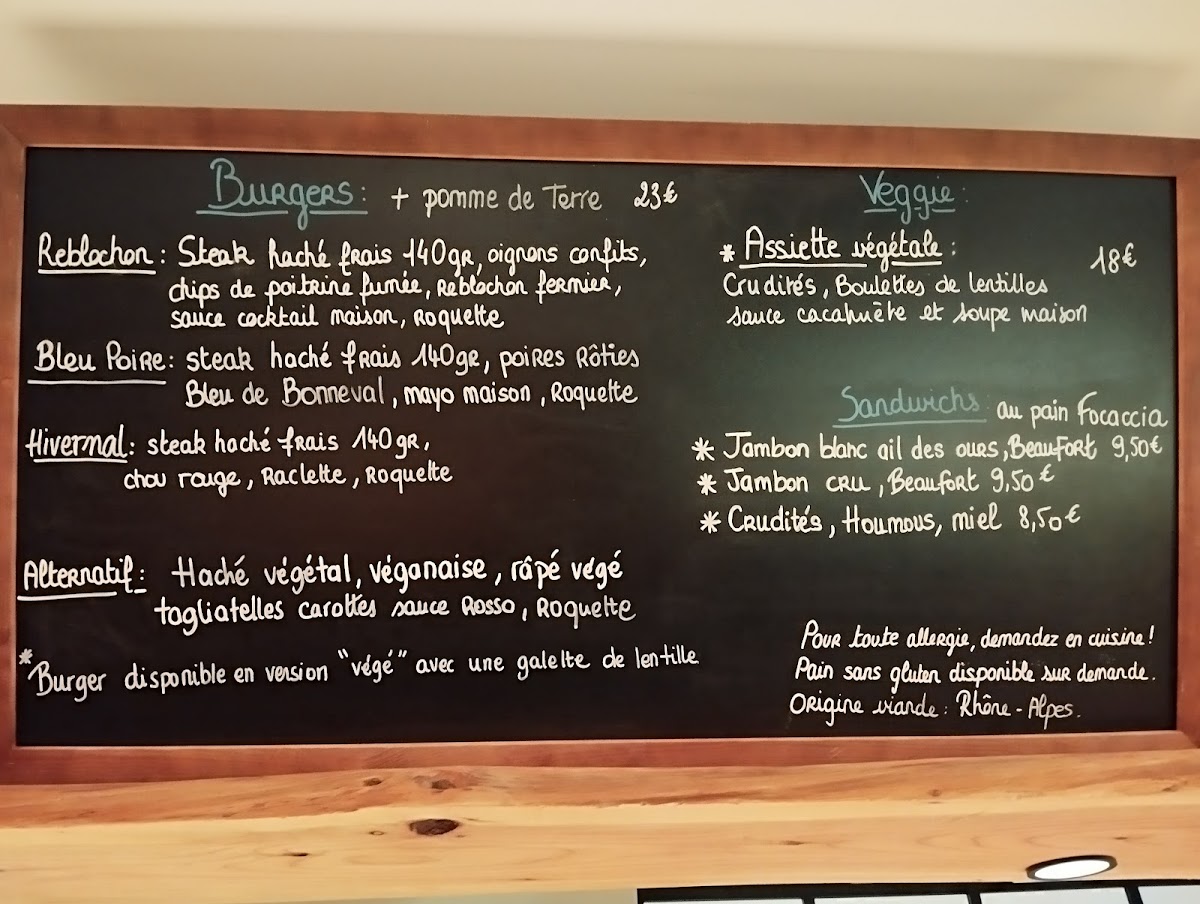 Burgers: + pomme de Terre 23€
Reblochon: Steak haché frais 140gr, oignons confits,
chips de poitrine fumée, Reblochon fermier,
sauce cocktail maison, Roquette
Bleu Poire: steak haché frais 140gr, poires Rôties
Bleu de Bonneval, mayo maison, Roquette
Hivernal: steak haché frais 140gr,
chou rouge, Raclette, Roquette
Alternatif: Haché végétal, véganaise, râpé végé
tagliatelles carottes sauce Rosso, Roquette
*Burger disponible en version "végé" avec une galette de lentille
Veggie:
* Assiette végétale: 18€
Crudités, Boulettes de lentilles
sauce cacahuète et soupe maison
Sandwichs au pain Focaccia
* Jambon blanc ail des ours, Beaufort 9,50€
* Jambon cru, Beaufort 9,50€
* Crudités, Houmous, miel 8,50€
Pour toute allergie, demandez en cuisine!
Pain sans gluten disponible sur demande.
Origine viande: Rhône-Alpes.